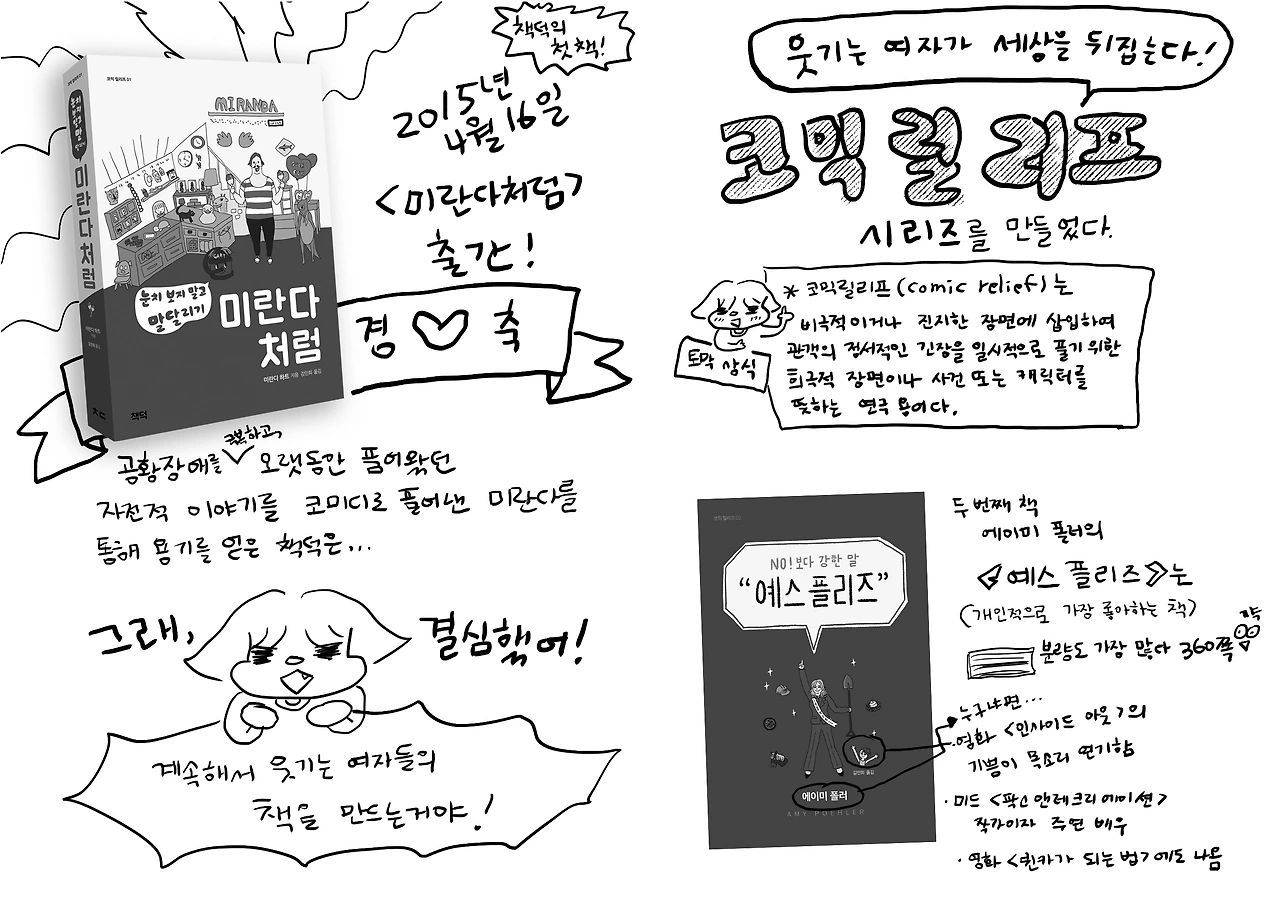 책덕의
첫 책!
2015년
4월 16일
<미란다처럼>
출간!
경 축
코믹 릴리프 01
눈치 보지 말고 말 달리기
미란다처럼
미란다 하트
책덕
코믹 릴리프 01
MIRANDA
눈치 보지 말고
말 달리기
미란다
처럼
미란다 하트 지음 김민희 옮김
책덕
극복하고,
공황장애를 오랫동안 품어왔던
자전적 이야기를 코미디로 풀어낸 미란다를
통해 용기를 얻은 책덕은...
그래,
결심했어!
계속해서 웃기는 여자들의
책을 만드는거야!
웃기는 여자가 세상을 뒤집는다!
코믹 릴리프
시리즈를 만들었다.
토막 상식
* 코믹릴리프(comic relief)는
비극적이거나 진지한 장면에 삽입하여
관객의 정서적인 긴장을 일시적으로 풀기 위한
희극적 장면이나 사건 또는 캐릭터를
뜻하는 연극 용어다.
코믹 릴리프 02
NO!보다 강한 말
“예스 플리즈”
김민희 옮김
에이미 폴러
AMY POEHLER
두 번째 책
에이미 폴러의
《예스 플리즈》는
(개인적으로 가장 좋아하는 책)
분량도 가장 많다 360쪽
누구냐면...
· 영화 <인사이드 아웃>의
기쁨이 목소리 연기함
· 미드 <팍스 앤 레크리에이션>
작가이자 주연 배우
· 영화 <퀸카가 되는 법>에도 나옴